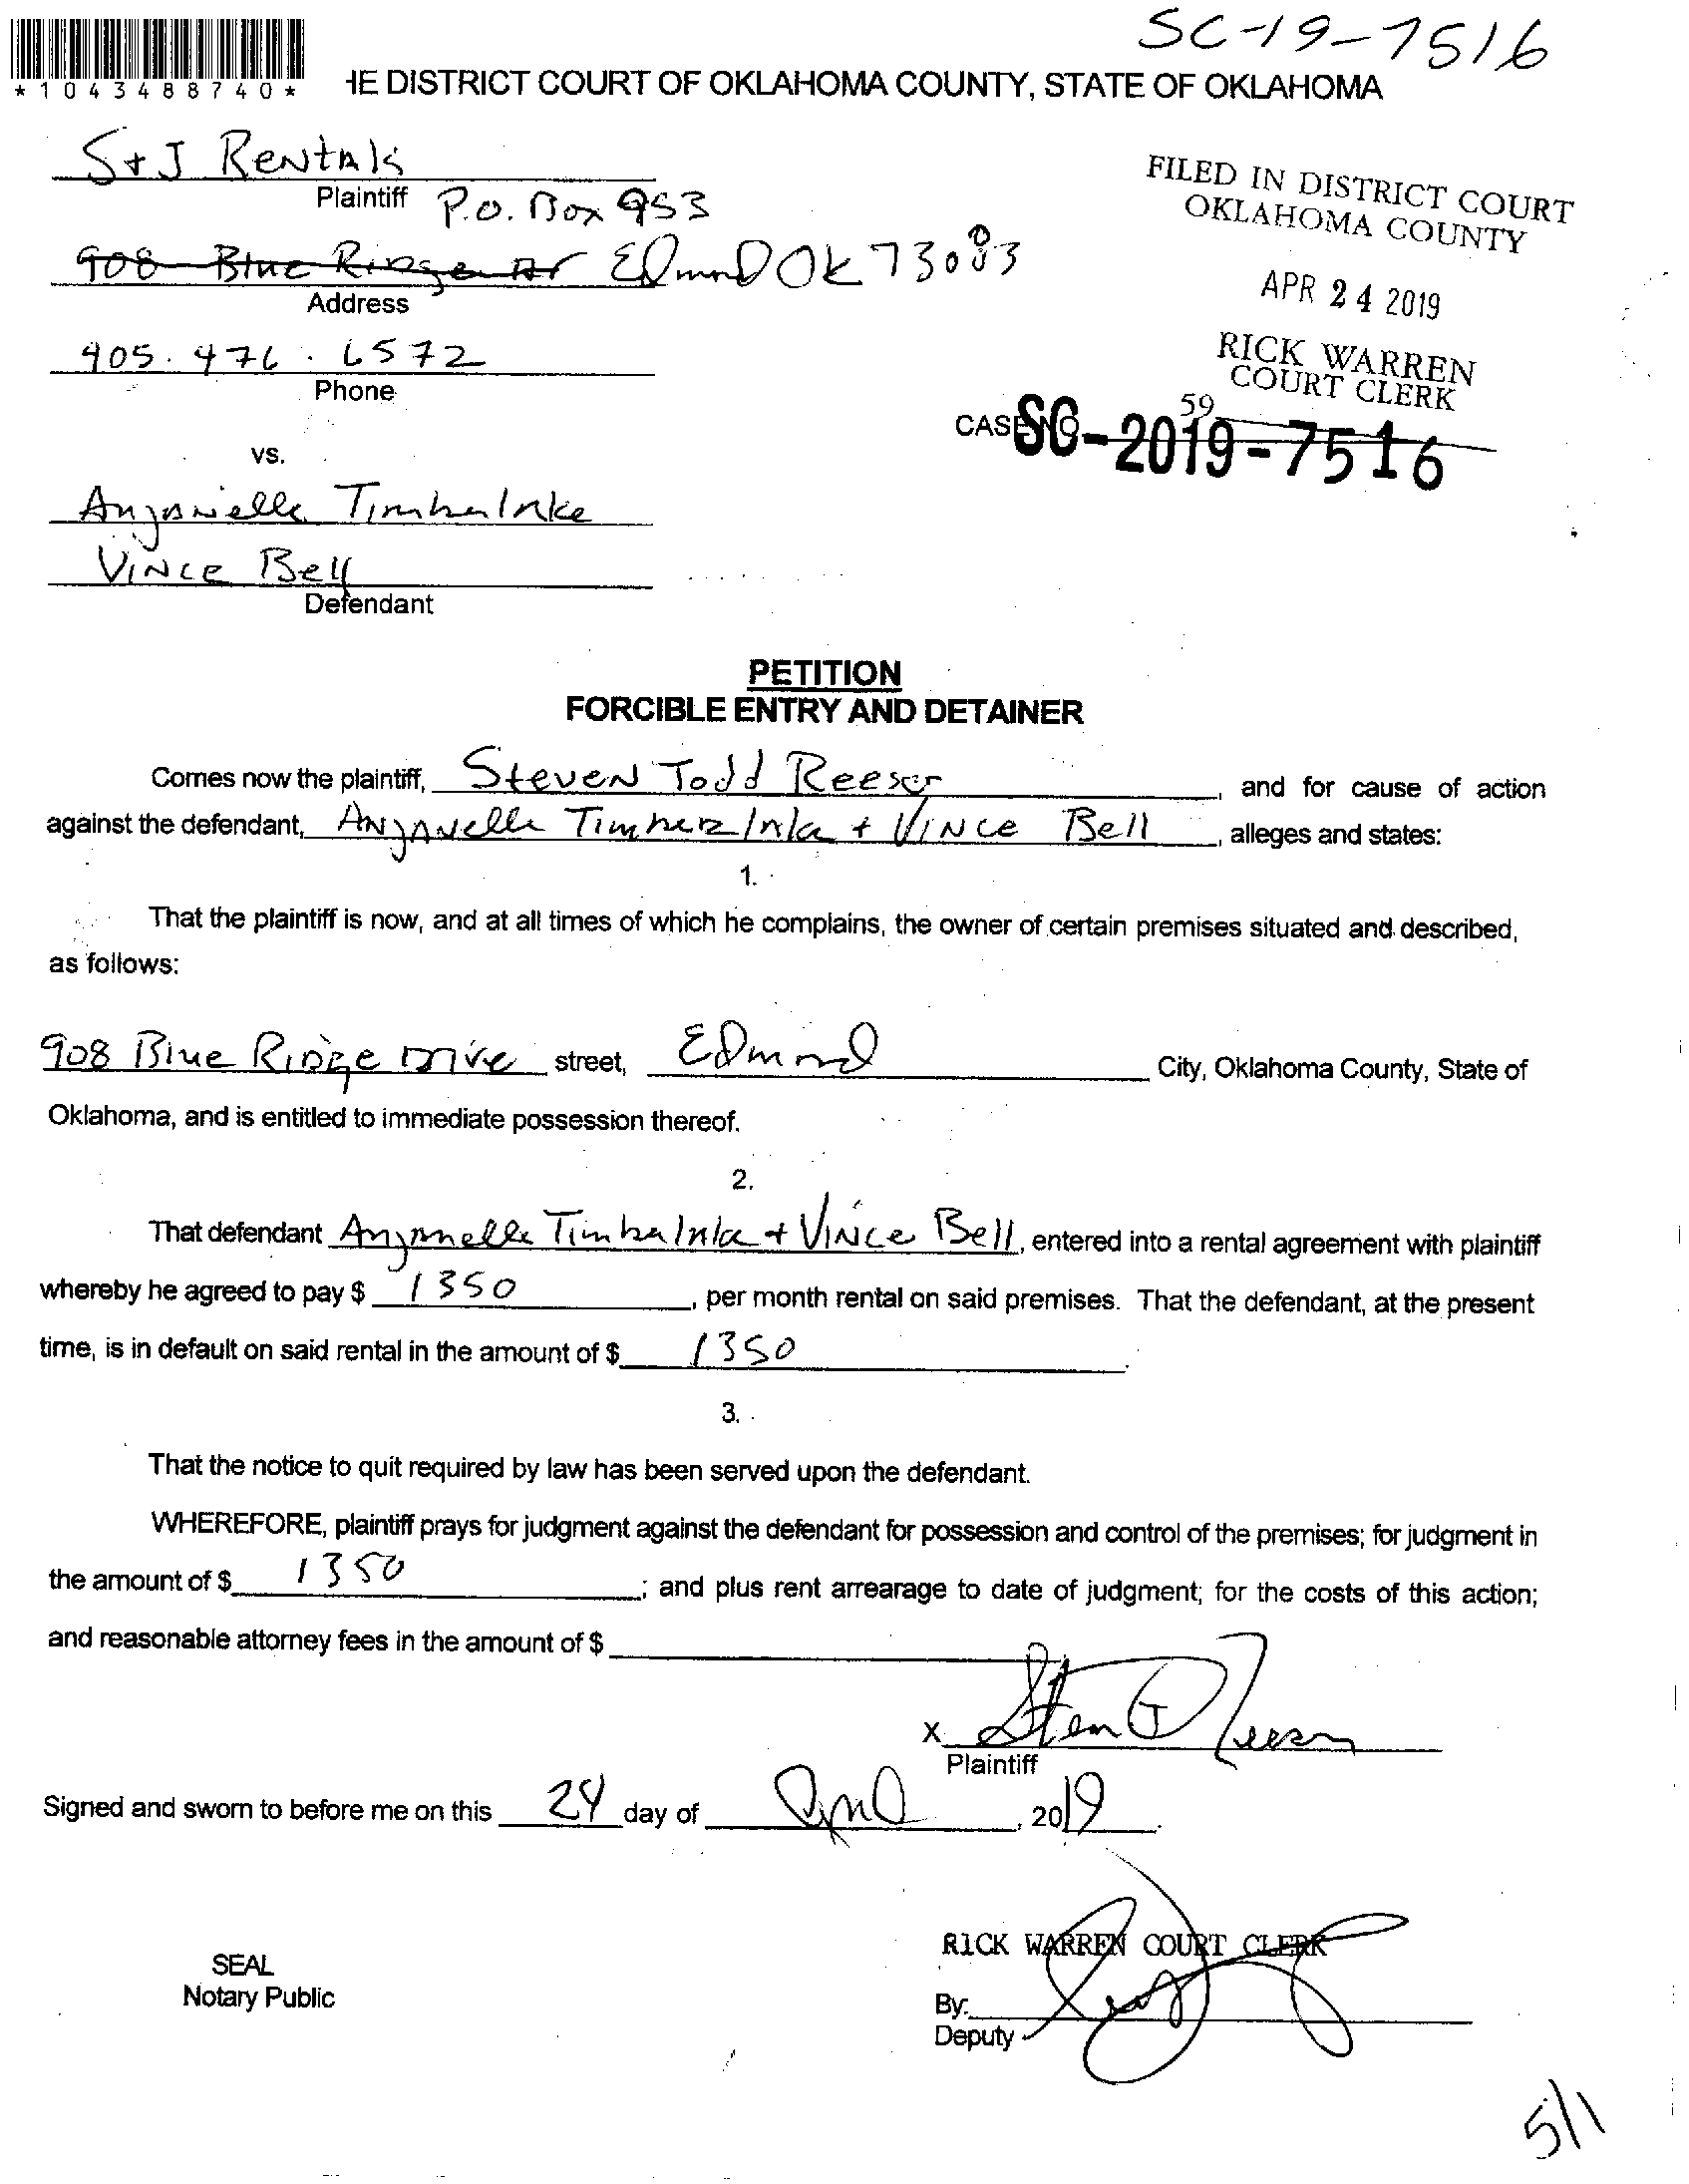 SC-19-7516
*1043488740*
HE DISTRICT COURT OF OKLAHOMA COUNTY, STATE OF OKLAHOMA
S+J Rentals
Plaintiff
P.O. Box 953
908 Blue Ridge Dr Edmond OK 73083
Address
405.476.6572
Phone
FILED IN DISTRICT COURT
OKLAHOMA COUNTY
APR 24 2019
RICK WARREN
COURT CLERK
59
CASE NO
SC-2019-7516
vs.
Anjanelle Timberlake
Vince Bell
Defendant
PETITION
FORCIBLE ENTRY AND DETAINER
Comes now the plaintiff, Steven Todd Reeser, and for cause of action
against the defendant, Anjanelle Timberlake + Vince Bell, alleges and states:
1.
That the plaintiff is now, and at all times of which he complains, the owner of certain premises situated and described,
as follows:
908 Blue Ridge Drive street, Edmond City, Oklahoma County, State of
Oklahoma, and is entitled to immediate possession thereof.
2.
That defendant Anjanelle Timberlake + Vince Bell, entered into a rental agreement with plaintiff
whereby he agreed to pay $ 1350, per month rental on said premises. That the defendant, at the present
time, is in default on said rental in the amount of $ 1350.
3.
That the notice to quit required by law has been served upon the defendant.
WHEREFORE, plaintiff prays for judgment against the defendant for possession and control of the premises; for judgment in
the amount of $ 1350; and plus rent arrearage to date of judgment; for the costs of this action;
and reasonable attorney fees in the amount of $
X Steven T Reeser
Plaintiff
Signed and sworn to before me on this 24 day of April, 2019.
RICK WARREN COURT CLERK
SEAL
Notary Public
By:
Deputy
5/1